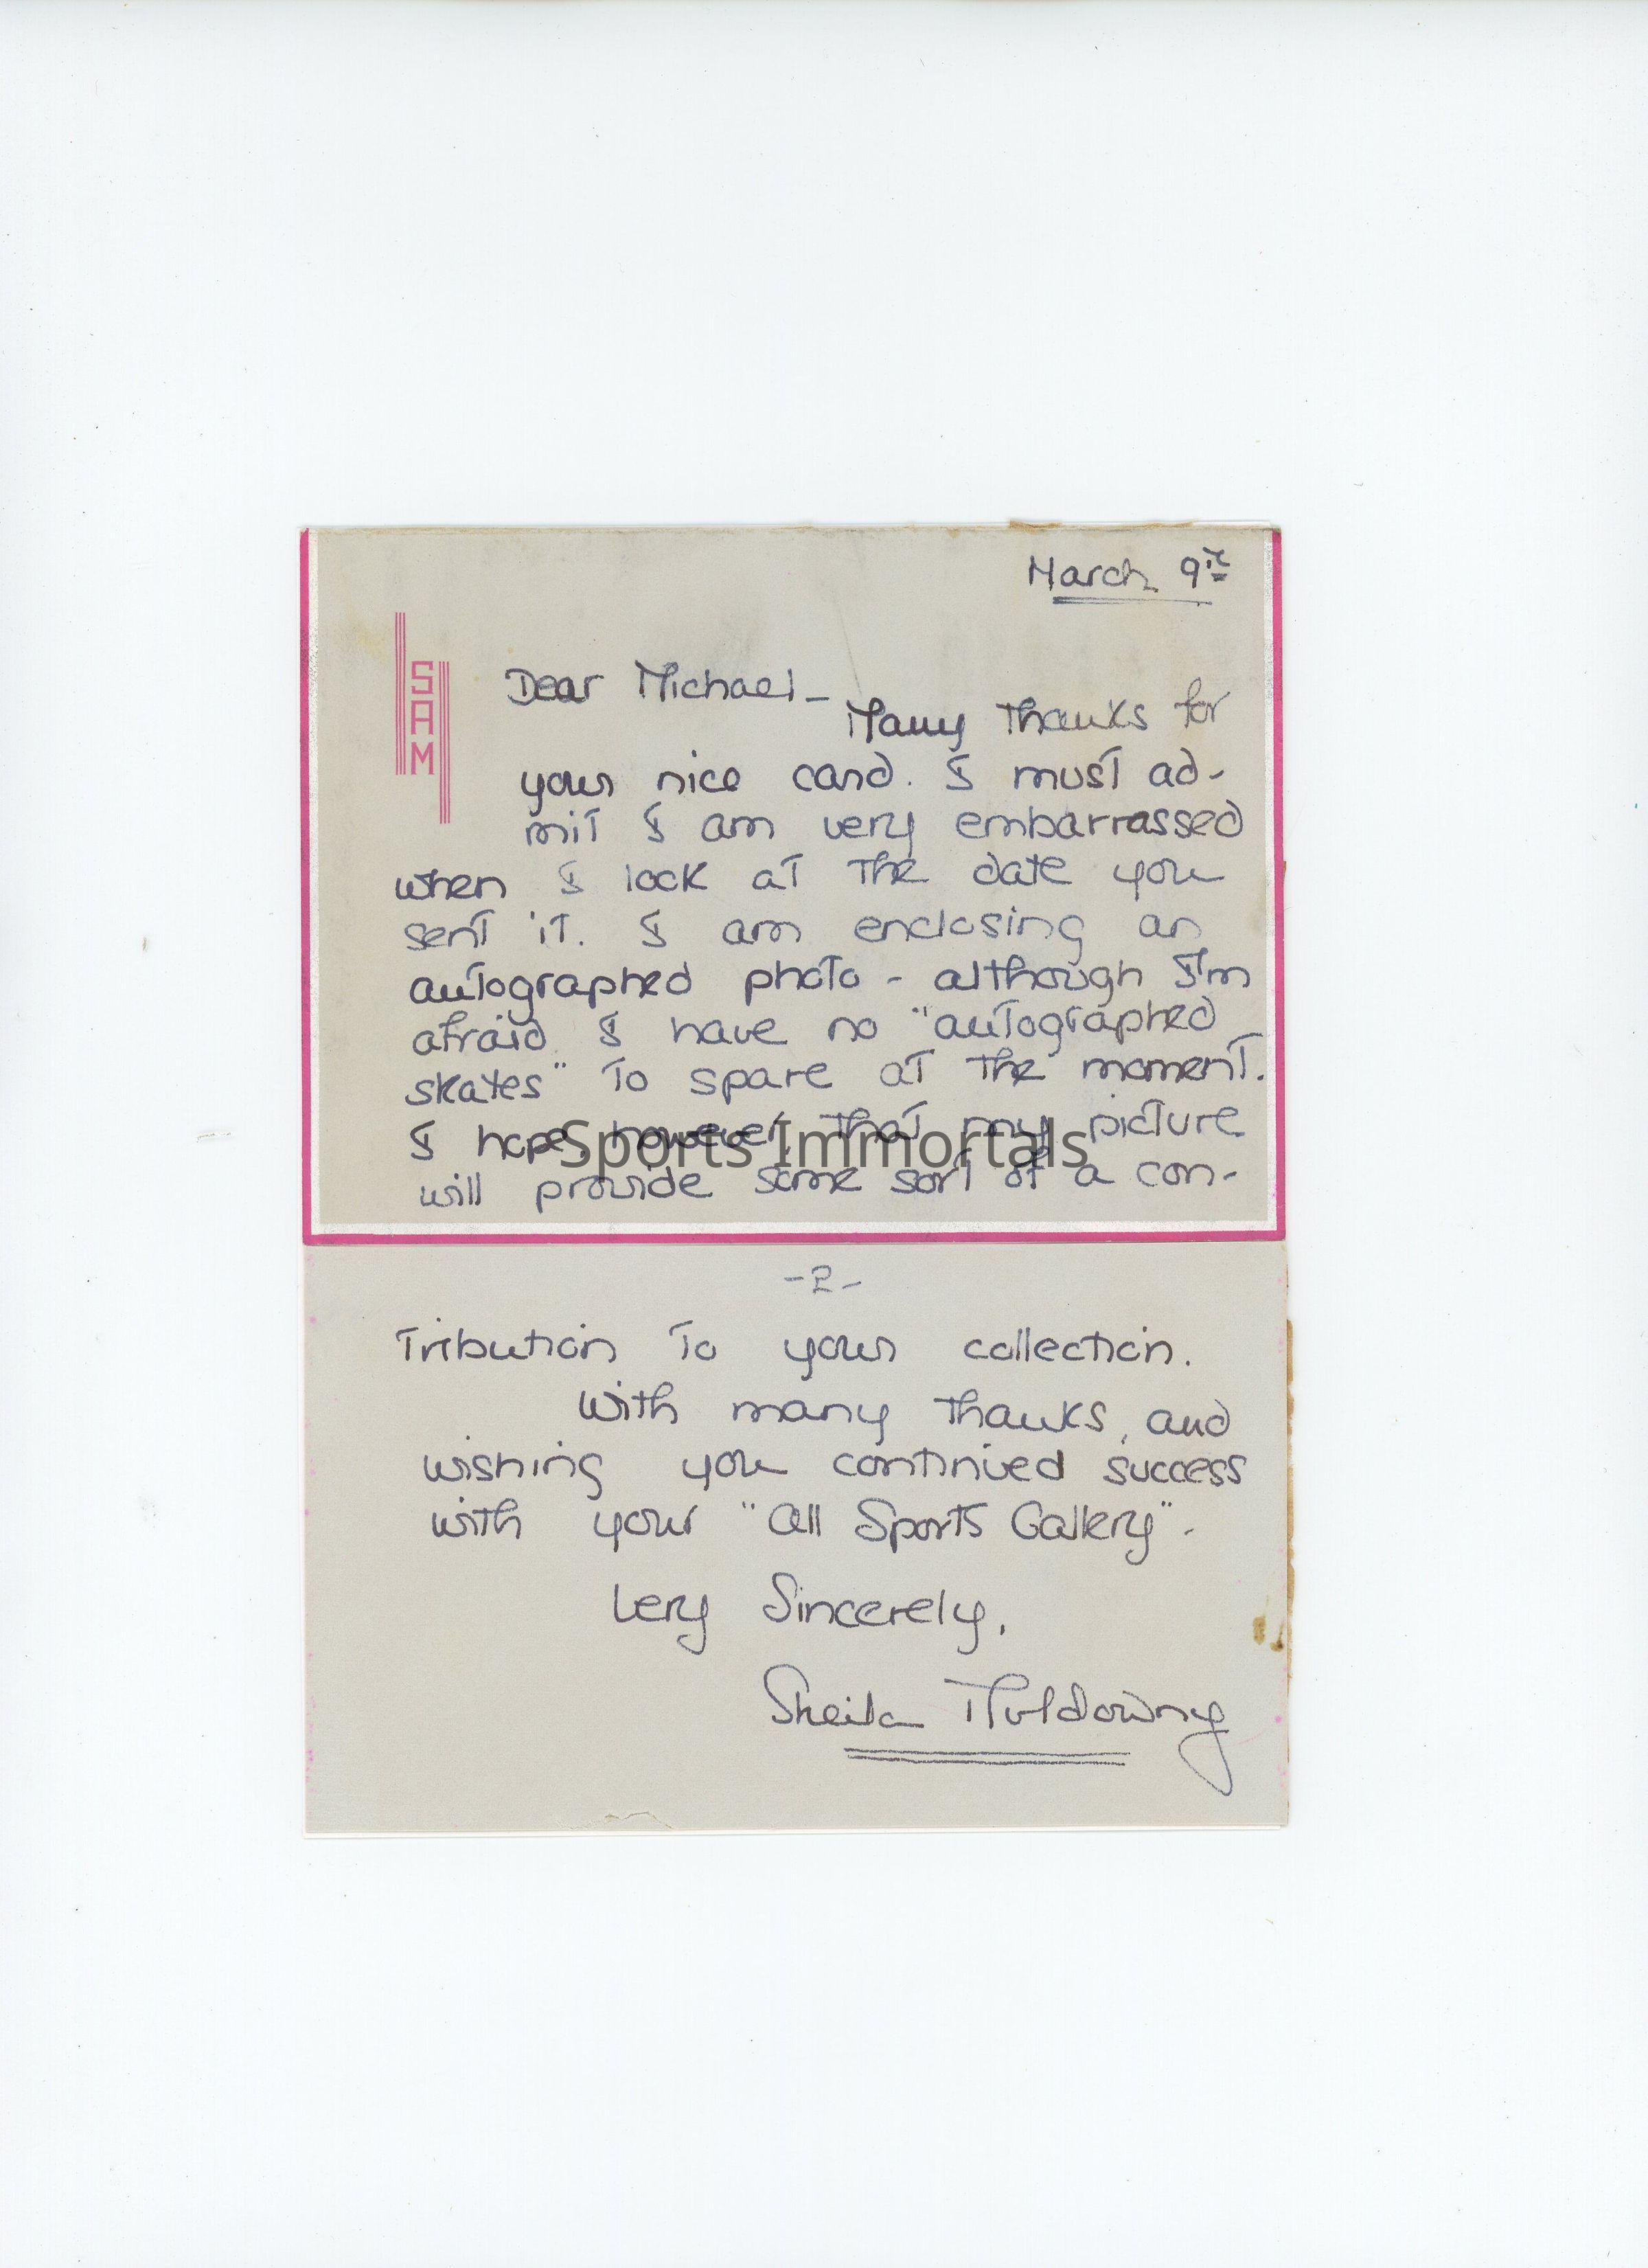 March 9th
SAM
Dear Michael-
Many Thanks for
your nice card. I must ad-
mit I am very embarrassed
when I look at the date you
sent it. I am enclosing an
autographed photo - although I'm
afraid I have no "autographed
skates" to spare at the moment.
I hope, however, that my picture
Sports Immortals
will provide some sort of a con-
-2-
tribution to your collection.
With many thanks, and
wishing you continued success
with your "All Sports Gallery".
Very Sincerely,
Sheila Muldowny